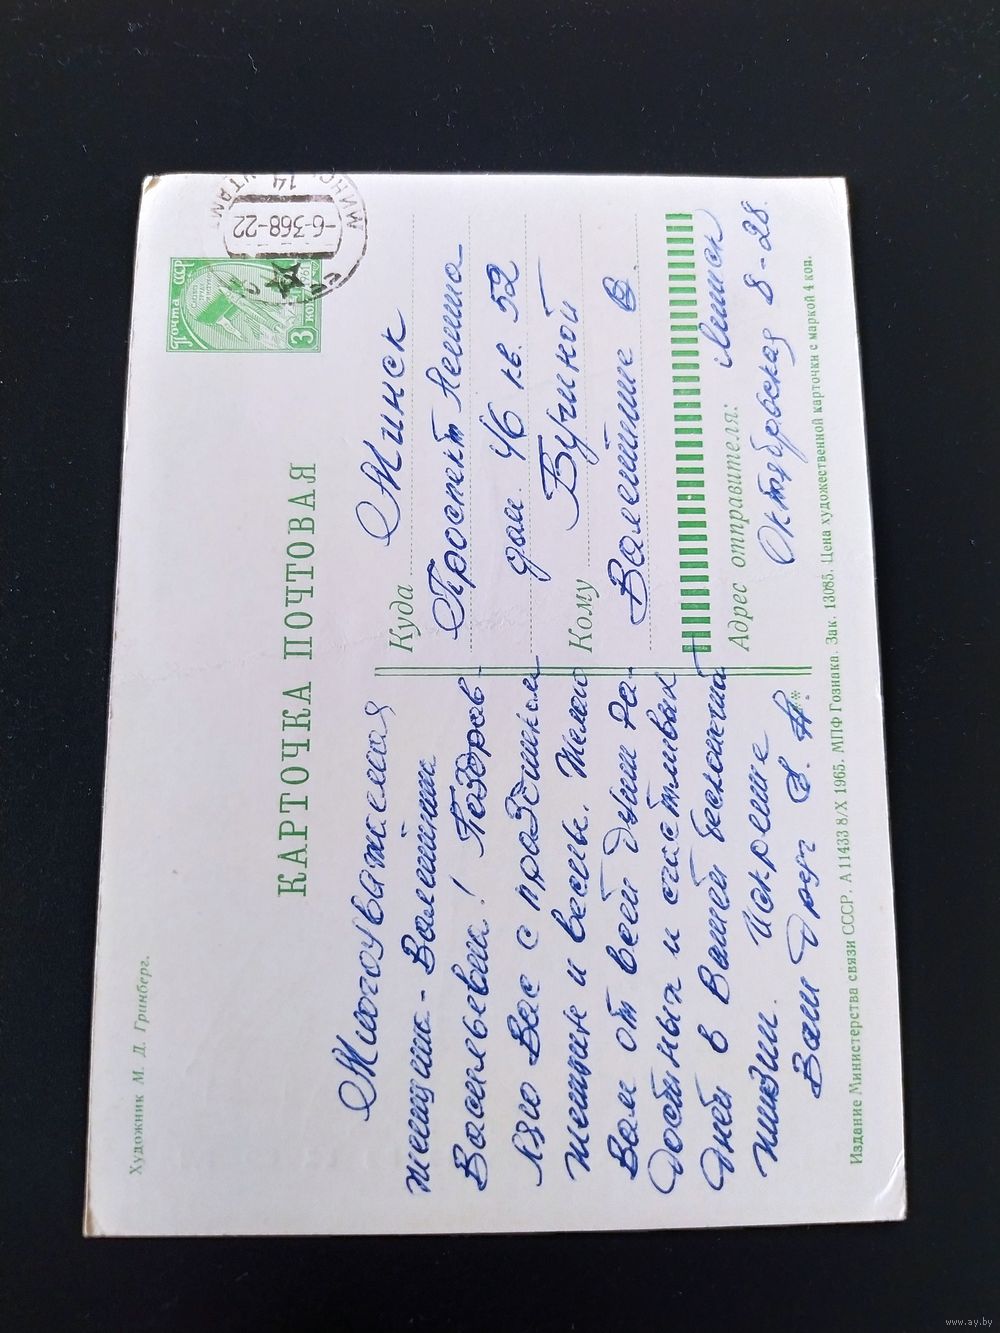 Художник М. Д. Гринберг.
КАРТОЧКА ПОЧТОВАЯ
Почта СССР
3
коп
-6-368-22
14
Многоуважаемая
женщина - Валентина
Васильевна! Поздрав-
ляю Вас с праздником
женщин и весны. Желаю
Вам от всей души ра-
достных и счастливых
дней в Вашей
жизни. Искренне
Ваш друг
Куда
Минск
Проспект Ленина
дом 46 кв. 52
Кому
Бучиной
Валентине В
Адрес отправителя:
Минск
Октябрьская 8-28.
**
Издание Министерства связи СССР. А 11433 8/X 1965. МПФ Гознака. Зак. 13085. Цена художественной карточки с маркой 4 коп.
www.ay.by